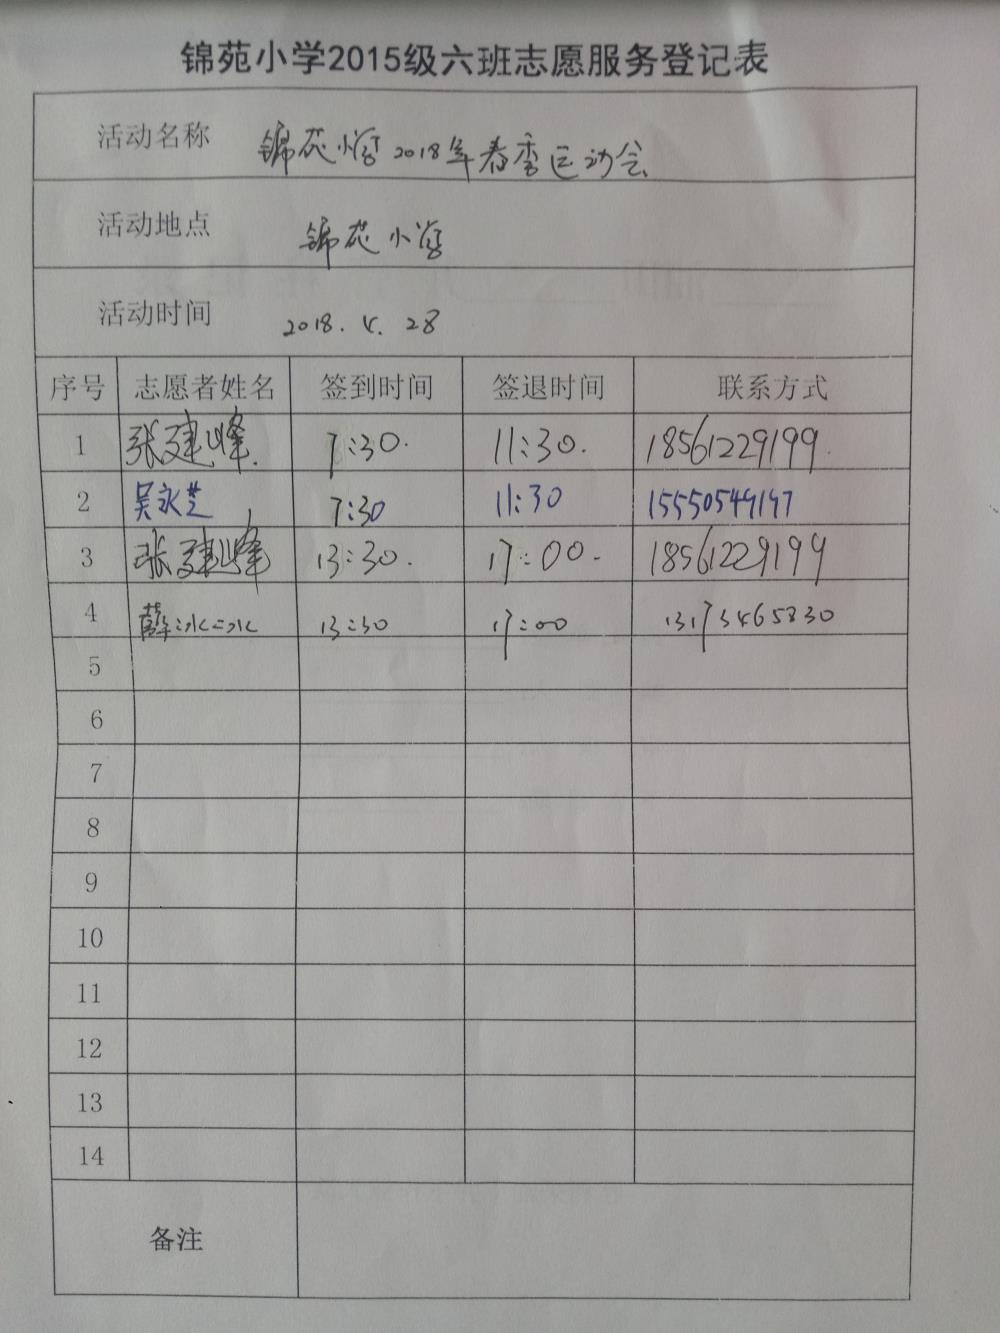 锦苑小学2015级六班志愿服务登记表
活动名称 锦苑小学2018年春季运动会
活动地点 锦苑小学
活动时间 2018.4.28
序号 志愿者姓名 签到时间 签退时间 联系方式
1 张建峰. 7:30. 11:30. 18561229199.
2 吴永芝 7:30 11:30 15550549197
3 张建峰 13:30. 17:00. 18561229199
4 薛冰冰 13:30 17:00 13173465830
5
6
7
8
9
10
11
12
13
14
备注